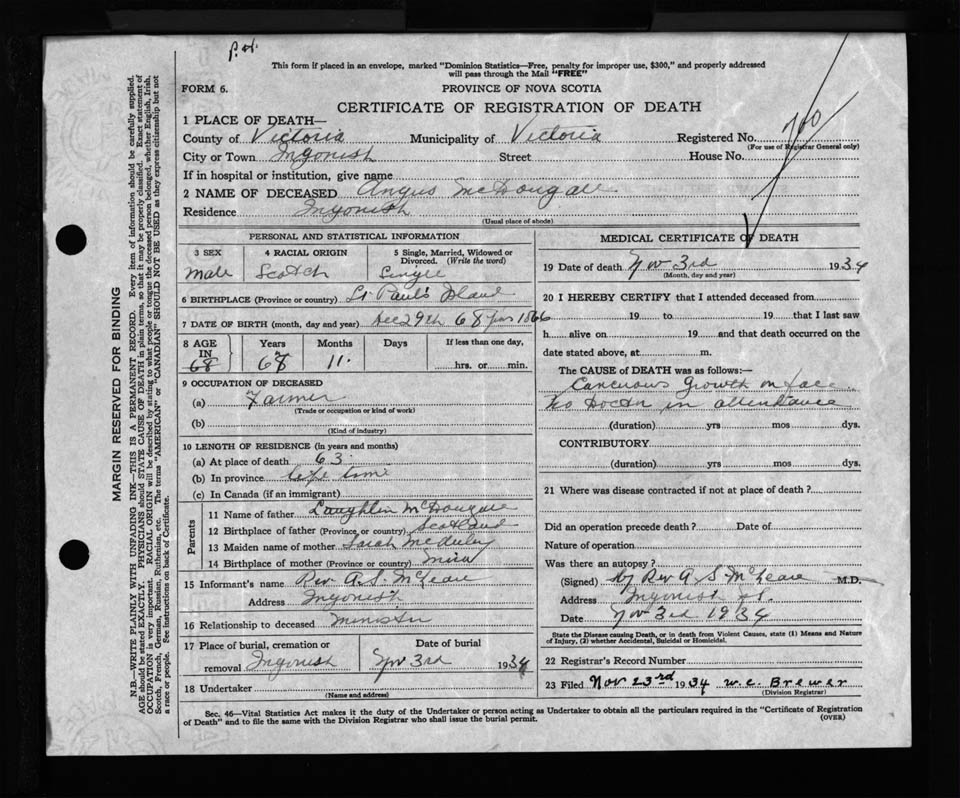 This form if placed in an envelope, marked "Dominion Statistics—Free, penalty for improper use, $300," and properly addressed
will pass through the Mail "FREE"
FORM 6.
PROVINCE OF NOVA SCOTIA
CERTIFICATE OF REGISTRATION OF DEATH
1 PLACE OF DEATH—
County of Victoria Municipality of Victoria Registered No.
(For use of Registrar General only)
City or Town Ingonish Street House No.
If in hospital or institution, give name
2 NAME OF DECEASED Angus McDougall
Residence Ingonish
(Usual place of abode)
PERSONAL AND STATISTICAL INFORMATION
3 SEX 4 RACIAL ORIGIN 5 Single, Married, Widowed or
Divorced. (Write the word)
Male Scotch Single
6 BIRTHPLACE (Province or country) St Paul's Island
7 DATE OF BIRTH (month, day and year) Dec 29th 68 yrs 1866
8 AGE Years Months Days If less than one day,
IN 68 68 11 hrs. or min.
9 OCCUPATION OF DECEASED
(a) Farmer
(Trade or occupation or kind of work)
(b)
(Kind of industry)
10 LENGTH OF RESIDENCE (in years and months)
(a) At place of death 63
(b) In province life time
(c) In Canada (if an immigrant)
Parents
11 Name of father Laughlin McDougall
12 Birthplace of father (Province or country) Scotland
13 Maiden name of mother Sarah
14 Birthplace of mother (Province or country)
15 Informant's name Rev A. S. McLean
Address Ingonish
16 Relationship to deceased Minister
17 Place of burial, cremation or Date of burial
removal Ingonish Nov 3rd 1934
18 Undertaker
(Name and address)
MEDICAL CERTIFICATE OF DEATH
19 Date of death Nov 3rd 1934
(Month, day and year)
20 I HEREBY CERTIFY that I attended deceased from
19 to 19 that I last saw
h alive on 19 and that death occurred on the
date stated above, at m.
The CAUSE of DEATH was as follows:—
Cancerous Growth on face
No Doctor in attendance
(duration) yrs mos dys.
CONTRIBUTORY
(duration) yrs mos dys.
21 Where was disease contracted if not at place of death?
Did an operation precede death? Date of
Nature of operation
Was there an autopsy?
(Signed) by Rev A. S. McLean M.D.
Address Ingonish
Date Nov 3rd 1934
State the Disease causing Death, or in death from Violent Causes, state (1) Means and Nature
of Injury, (2) whether Accidental, Suicidal or Homicidal.
22 Registrar's Record Number
23 Filed Nov 23rd 1934 W.C. Brewer
(Division Registrar)
Sec. 46—Vital Statistics Act makes it the duty of the Undertaker or person acting as Undertaker to obtain all the particulars required in the "Certificate of Registration
of Death" and to file the same with the Division Registrar who shall issue the burial permit.
(OVER)
MARGIN RESERVED FOR BINDING
N.B.—WRITE PLAINLY WITH UNFADING INK—THIS IS A PERMANENT RECORD. Every item of information should be carefully supplied.
AGE should be stated EXACTLY. PHYSICIANS should STATE CAUSE OF DEATH in plain terms, so that it may be properly classified. Exact statement of
OCCUPATION is very important. RACIAL ORIGIN will be described by stating to what people or tongue the deceased person belonged, whether English, Irish,
Scotch, French, German, Russian, Ruthenian, etc. The terms "AMERICAN" or "CANADIAN" SHOULD NOT BE USED as they express citizenship but not
a race or people. See instructions on back of Certificate.